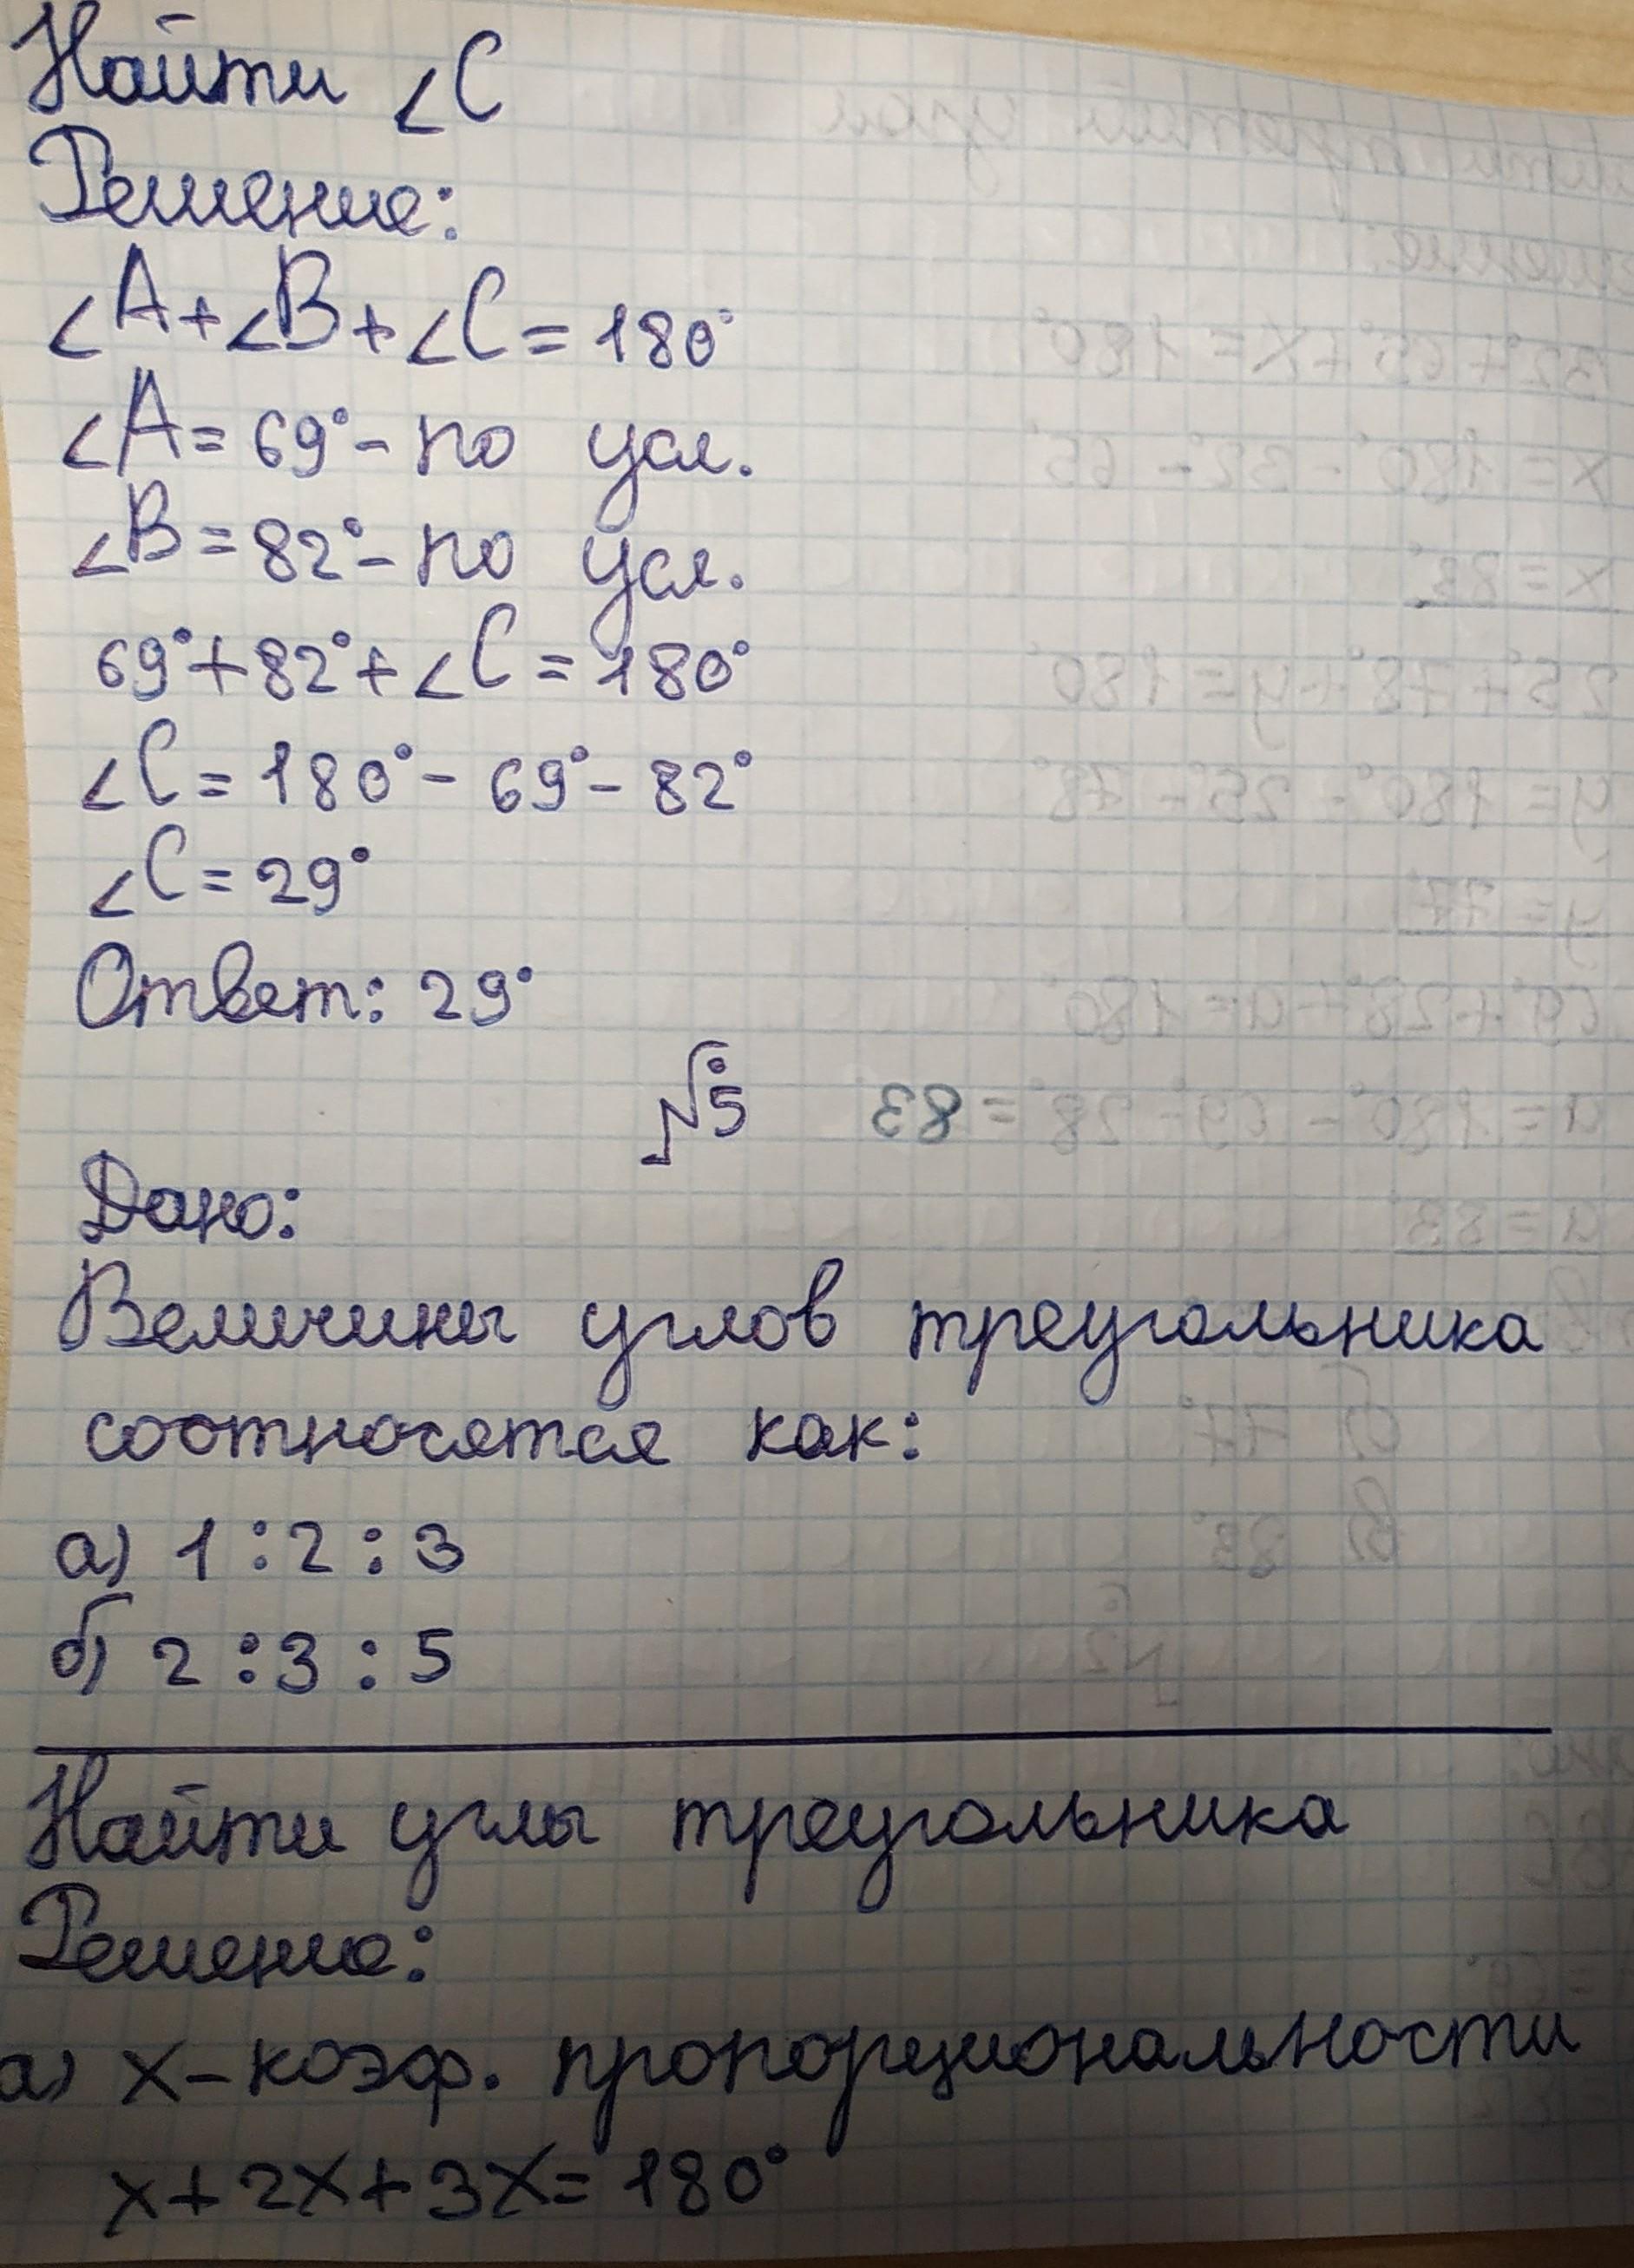 Найти ∠C
Решение:
∠A+∠B+∠C=180°
∠A=69°- по усл.
∠B=82°- по усл.
69°+82°+∠C=180°
∠C=180°-69°-82°
∠C=29°
Ответ: 29°
№5
Дано:
Величины углов треугольника
соотносятся как:
а) 1:2:3
б) 2:3:5
Найти углы треугольника
Решение:
а) x-коэф. пропорциональности
x+2x+3x=180°